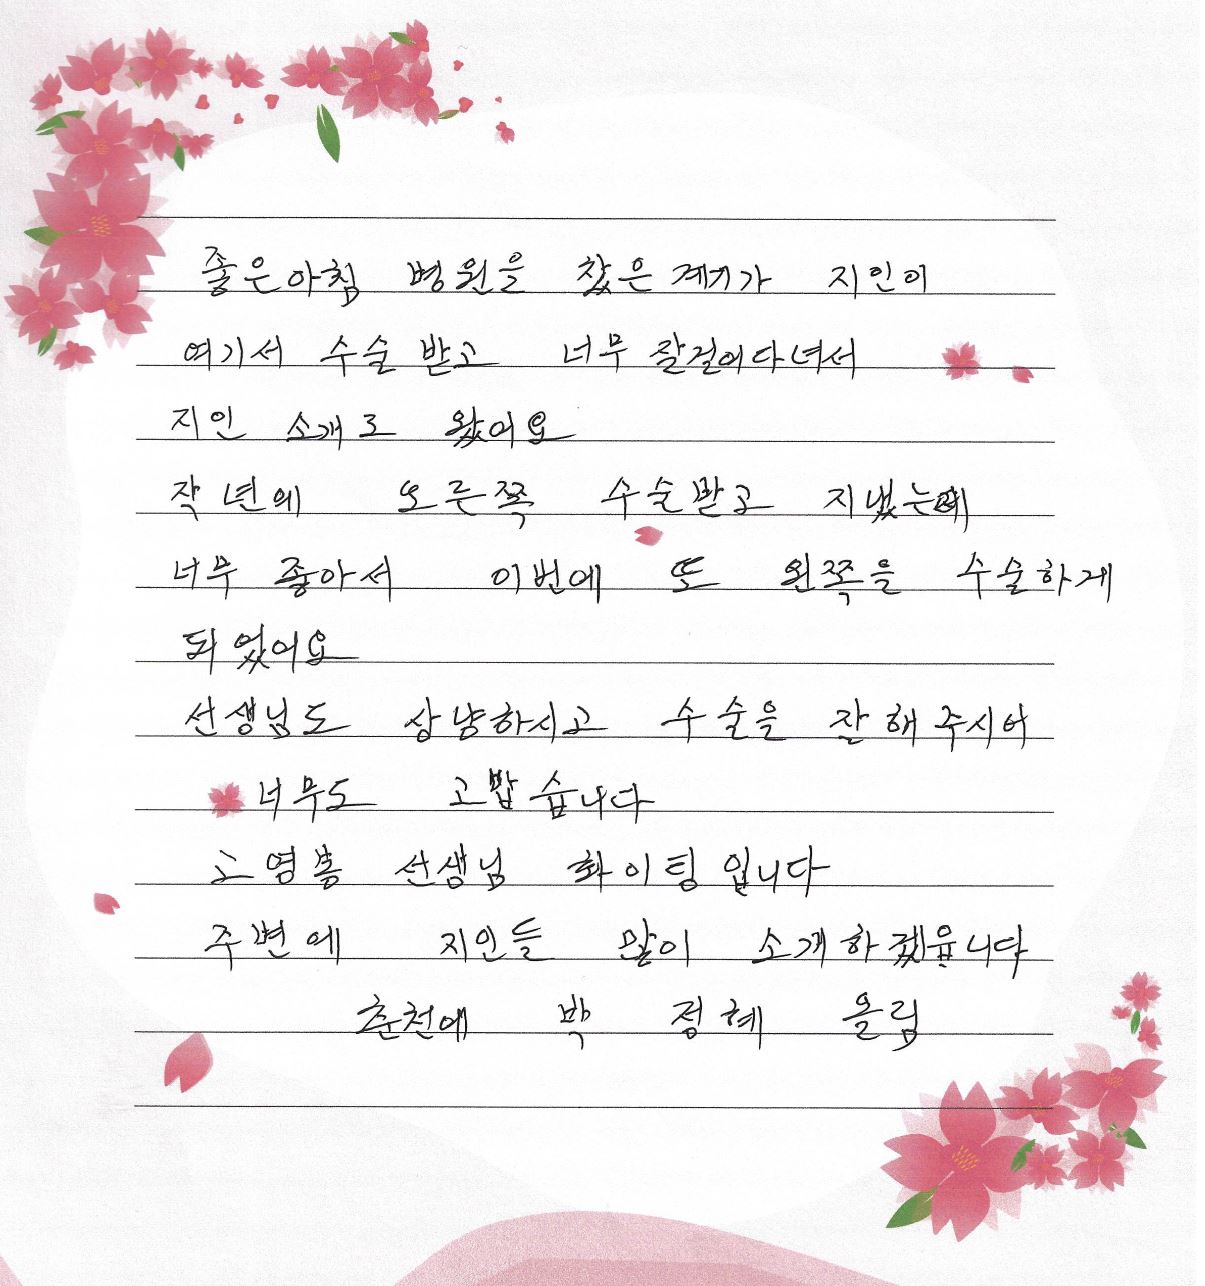 좋은아침 병원을 찾은 계기가 지인이
여기서 수술 받고 너무 잘걸어다녀서
지인 소개로 왔어요
작년에 오른쪽 수술받고 지냈는데
너무 좋아서 이번에 또 왼쪽을 수술하게
되었어요
선생님도 상냥하시고 수술을 잘해주시어
너무도 고맙습니다
고영봉 선생님 화이팅입니다
주변에 지인들 많이 소개하겠읍니다
춘천에 박 정혜 올림